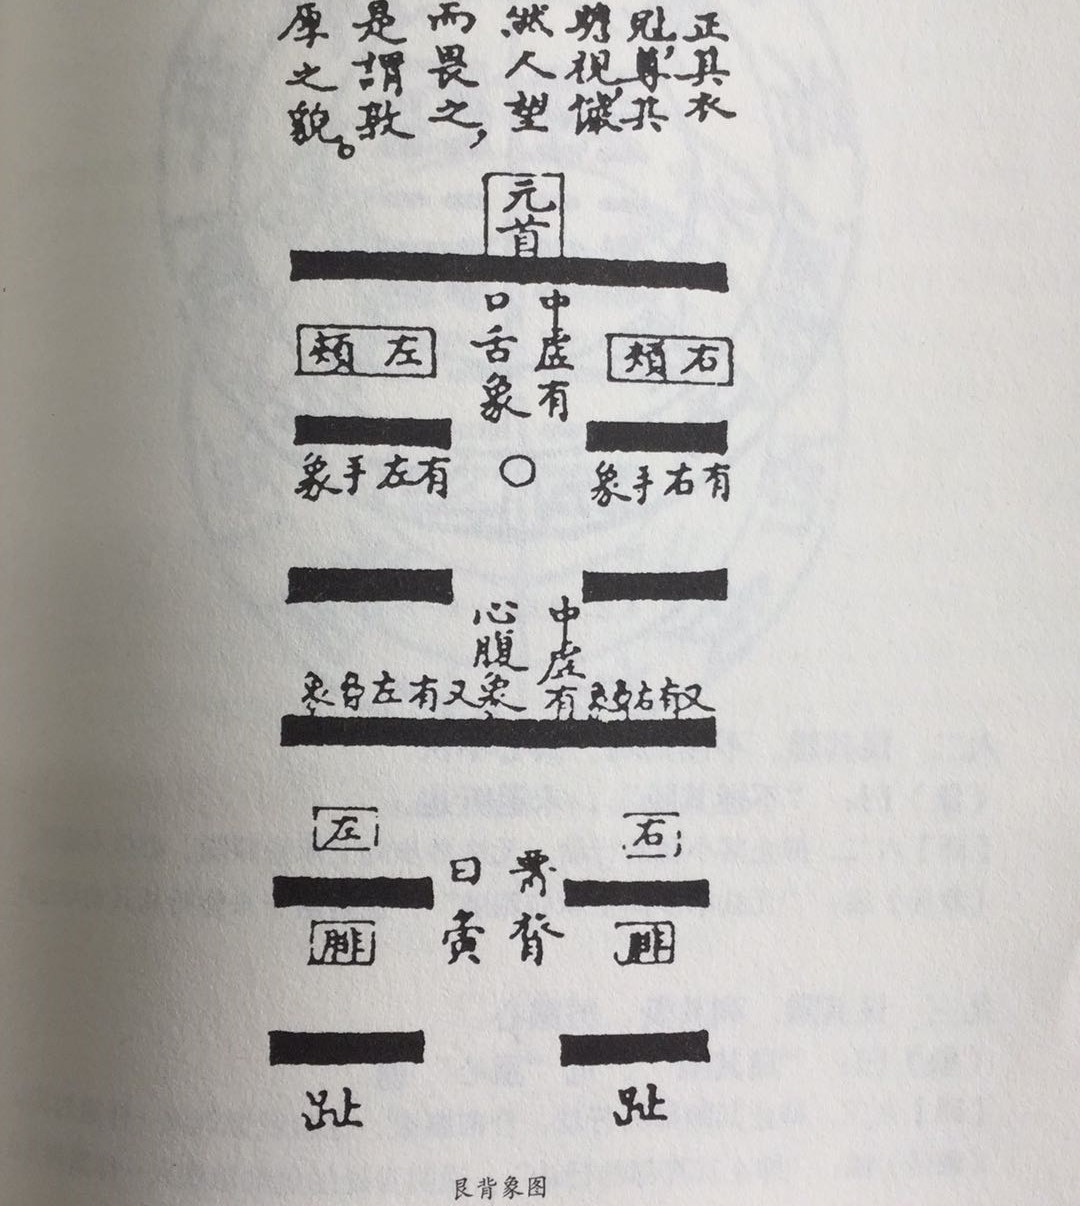 正其衣
冠,尊其
瞻視,儼
然人望
而畏之,
是謂敦
厚之貌。
元首
中虛有
口舌象
右頰
左頰
有右手象
有左手象
中虛有
心腹象
又有右象
又有左象
右
左
界背
曰夤
腓
腓
趾
趾
艮背象图